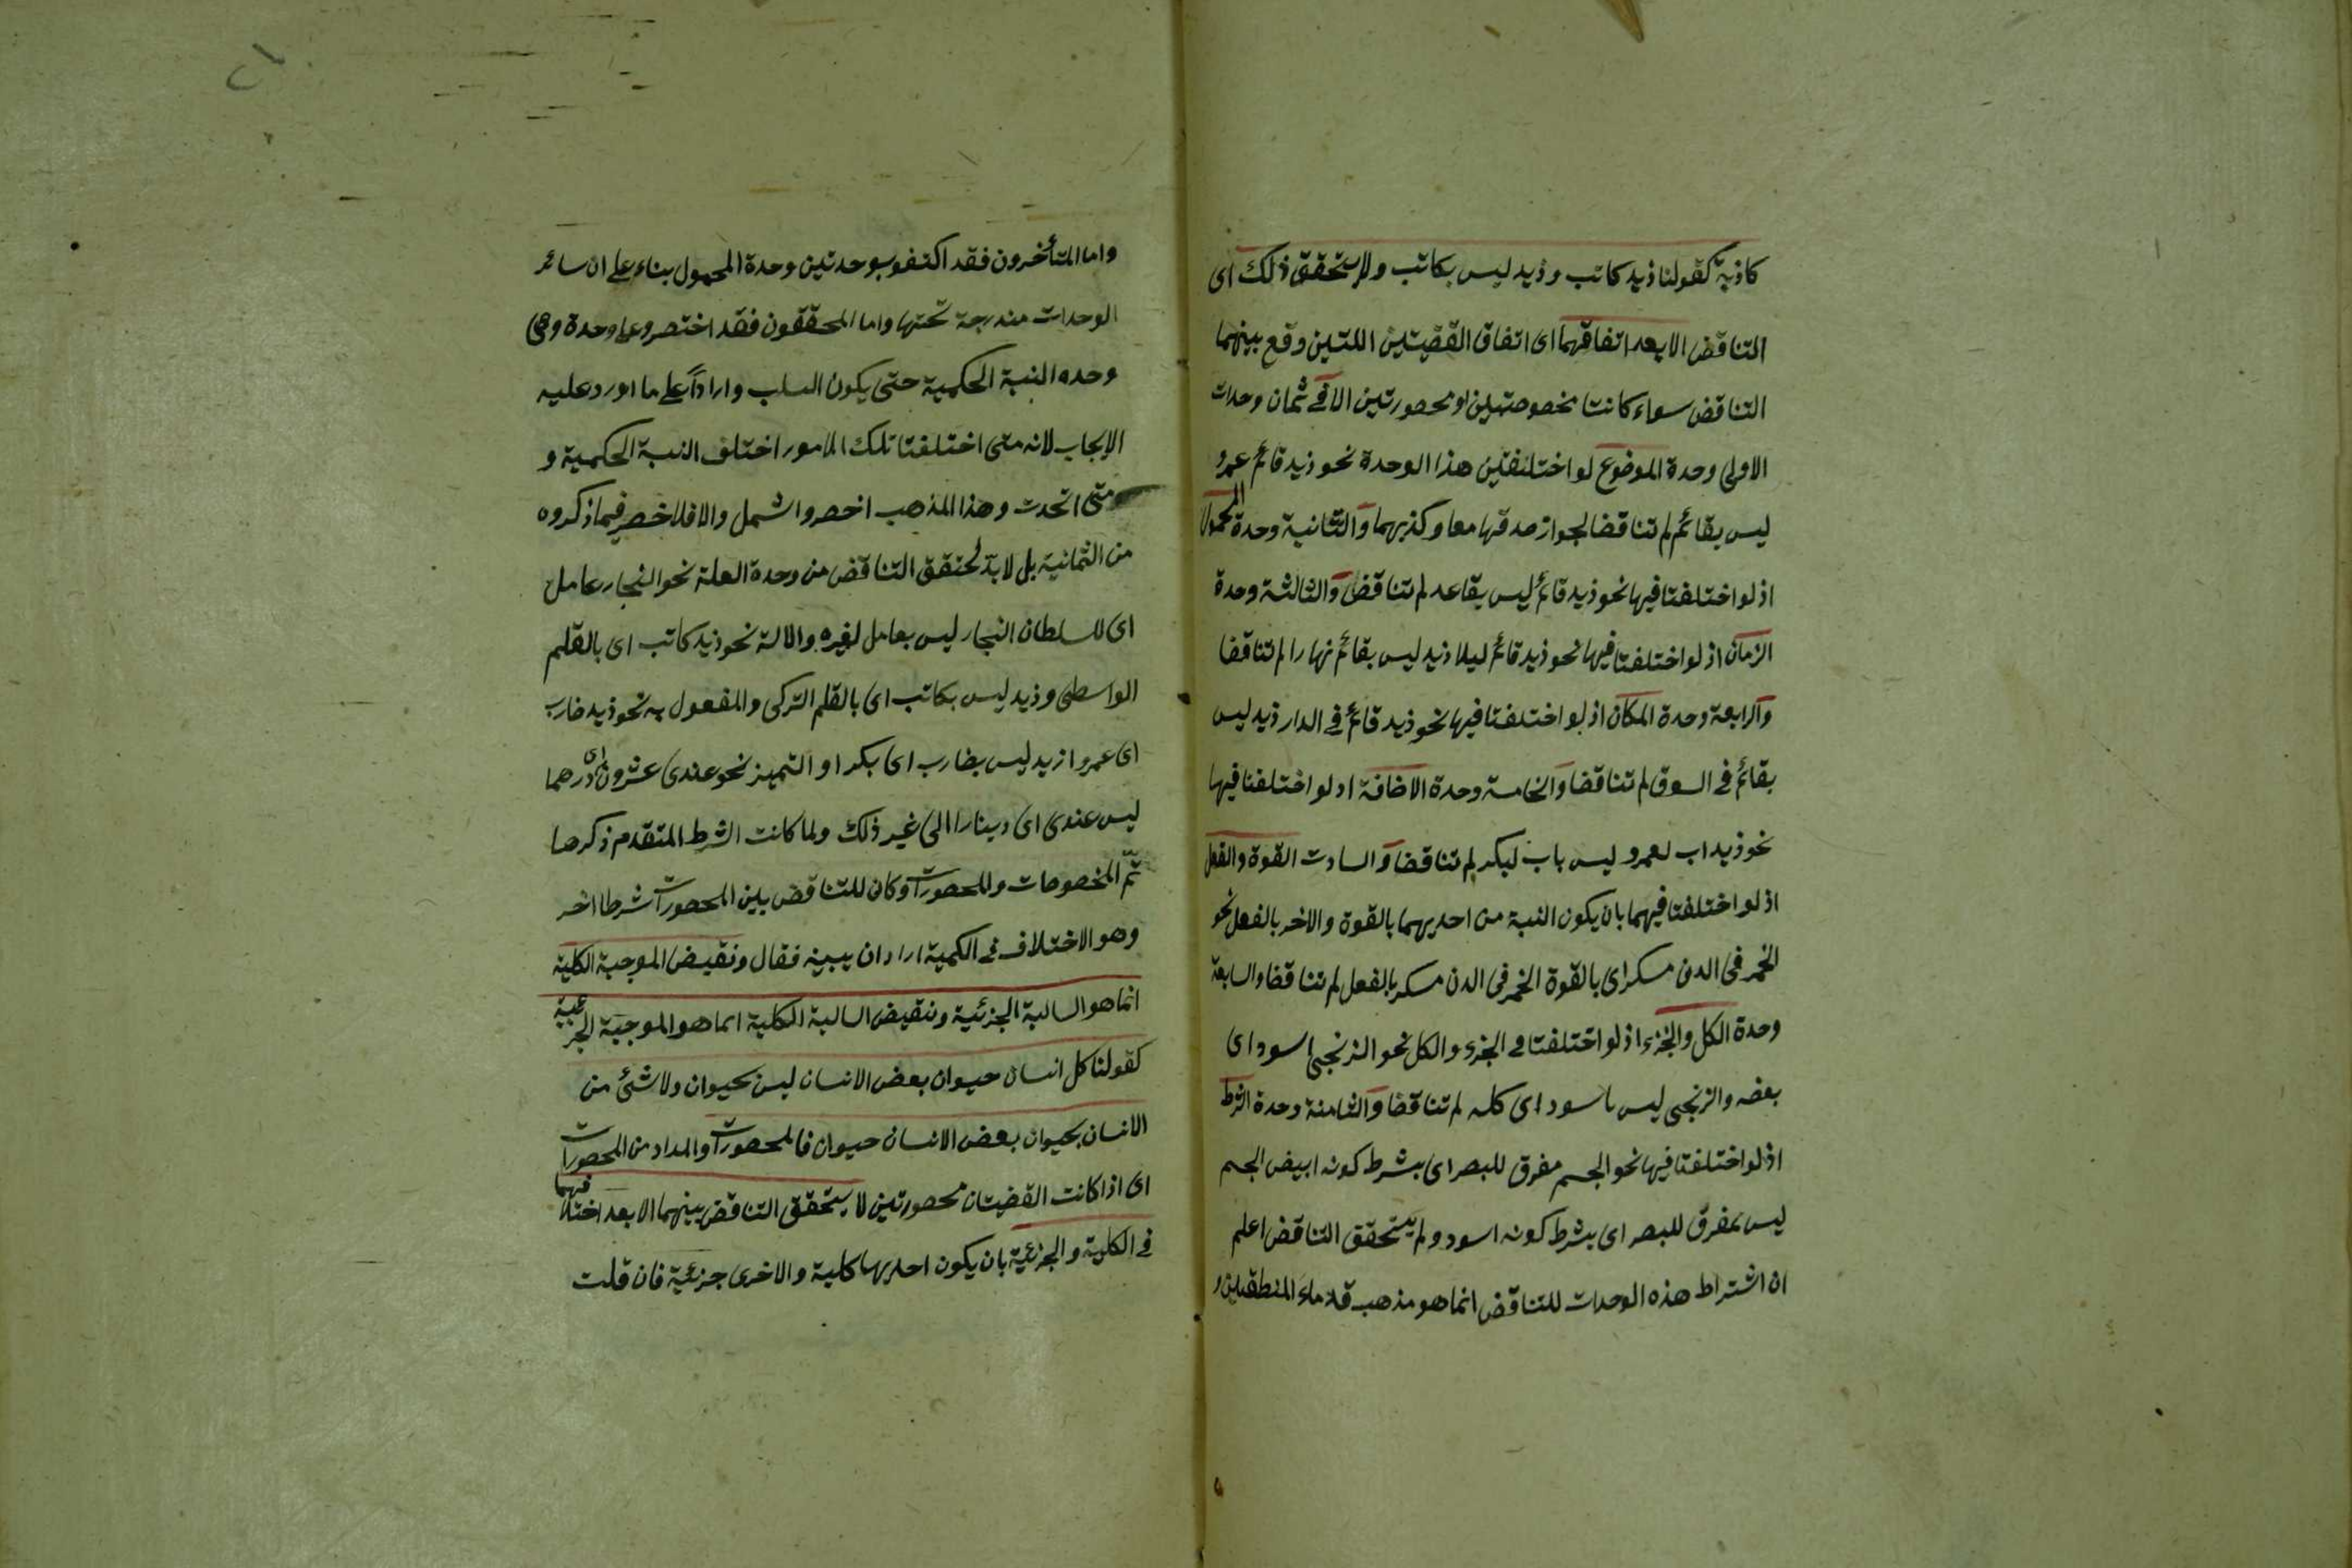 كاذبة كقولنا زيد كاتب وزيد ليس بكاتب ولا يتحقق ذلك اى
التناقض الا بعد اتفاقهما اى اتفاق القضيتين اللتين وقع بينهما
التناقض سواء كانتا مخصوصتين او محصورتين الا فى ثمان وحدات
الاولى وحدة الموضوع لو اختلفتين هذا الوحدة نحو زيد قائم عمرو
ليس بقائم لم تناقضا لجواز صدقها معا وكذبهما والثانية وحدة المحمول
اذ لو اختلفتا فيها نحو زيد قائم ليس بقاعد لم تناقض والثالثة وحدة
الزمان اذ لو اختلفتا فيها نحو زيد قائم ليلا زيد ليس بقائم نهارا لم تناقضا
والرابعة وحدة المكان اذ لو اختلفتا فيها نحو زيد قائم فى الدار زيد ليس
بقائم فى السوق لم تناقضا والخامسة وحدة الاضافة اد لو اختلفتا فيها
نحو زيد اب لعمرو ليس باب لبكر لم تناقضا والسادت القوة والفعل
اذ لو اختلفتا فيهما بان يكون النسبة من احديهما بالقوة والاخر بالفعل نحو
الخمر فى الدن مسكر اى بالقوة الخمر فى الدن مسكر بالفعل لم تناقضا والسابعة
وحدة الكل والجزء اذ لو اختلفتا فى الجزء والكل نحو الزنجى اسود اى
بعضه والزنجى ليس باسود اى كله لم تناقضا والثامنة وحدة الشرط
اذ لو اختلفتا فيها نحو الجسم مفرق للبصر اى بشرط كونه ابيض الجسم
ليس بمفرق للبصر اى بشرط كونه اسود ولم يتحقق التناقض اعلم
ان اشتراط هذه الوحدات للتناقض انما هو مذهب قدماء المنطقيين و
واما المتأخرون فقد اكتفو بوحدتين وحدة المحمول بناء على ان سائر
الوحدات مندرجة تحتها واما المحققون فقد اختصروا على وحدة وهى
وحده النسبة الحكمية حتى يكون السلب واردا على ما اورد عليه
الايجاب لانه متى اختلفتا تلك الامور اختلف النسبة الحكمية و
متى اتحدت وهذا المذهب اخصر واشمل والا فلا حصر فيما ذكروه
من الثمانية بل لا بد لتحقق التناقض من وحدة العلة نحو النجار عامل
اى للسلطان النجار ليس بعامل لغيره والالة نحو زيد كاتب اى بالقلم
الواسطى وزيد ليس بكاتب اى بالقلم التركى والمفعول به نحو زيد ضارب
اى عمروا زيد ليس بضارب اى بكرا و التميز نحو عندى عشرون اى درهما
ليس عندى اى دينارا الى غير ذلك ولما كانت الشرط المتقدم ذكرها
ثمّ المخصوصات والمحصورات وكان للتناقض بين المحصورات شرطا اخر
وهو الاختلاف فى الكمية اراد ان يبينه فقال ونقيض الموجبة الكلية
انما هو السالبة الجزئية ونقيض السالبة الكلية انما هو الموجبة الجزئية
كقولنا كل انسان حيوان بعض الانسان ليس بحيوان ولا شئ من
الانسان بحيوان بعض الانسان حيوان فالمحصورات والمراد من المحصورات
اى اذا كانت القضيتان محصورتين لا يتحقق التناقض بينهما الا بعد اختلافهما
فى الكلية والجزئية بان يكون احديهما كلية والاخرى جزئية فان قلت